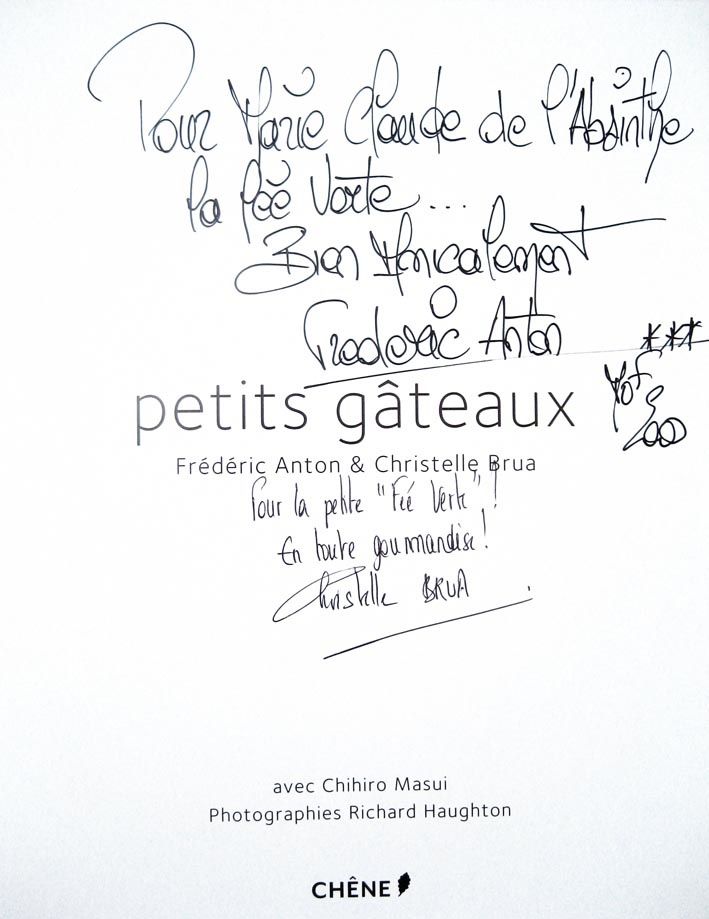 Pour Marie Claude de l'Absinthe
la fée Verte...
Bien Amicalement
Frédéric Anton
***
MOF
2000
petits gâteaux
Frédéric Anton & Christelle Brua
Pour la petite "Fée Verte"!
En toute gourmandise!
Christelle BRUA
avec Chihiro Masui
Photographies Richard Haughton
CHÊNE